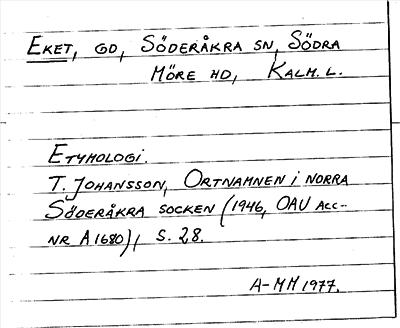 EKET, GD, SÖDERÅKRA SN, SÖDRA
MÖRE HD, KALM. L.
ETYMOLOGI.
T. JOHANSSON, ORTNAMNEN I NORRA
SÖDERÅKRA SOCKEN (1946, OAU ACC-
NR A1680), S. 28.
A-MM 1977.